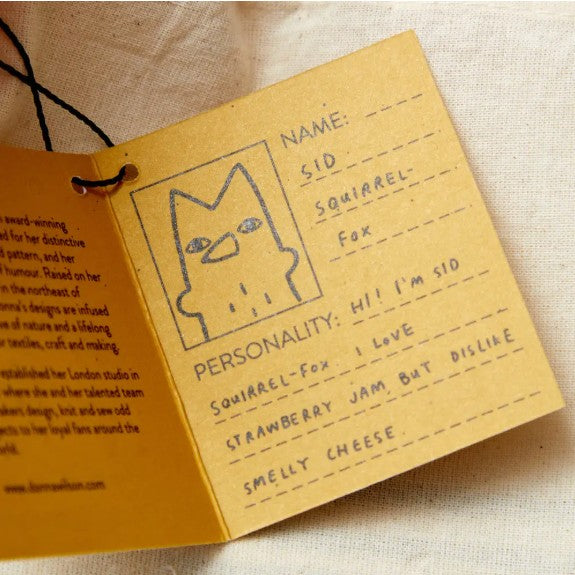 award-winning
ed for her distinctive
d pattern, and her
f humour. Raised on her
in the northeast of
onna's designs are infused
ve of nature and a lifelong
r textiles, craft and making.
established her London studio in
where she and her talented team
akers design, knit and sew odd
ects to her loyal fans around the
rld.
www.donnawilson.com
NAME:
SID
SQUIRREL-
FOX
PERSONALITY: HI! I'M SID
SQUIRREL-FOX. I LOVE
STRAWBERRY JAM, BUT DISLIKE
SMELLY CHEESE.